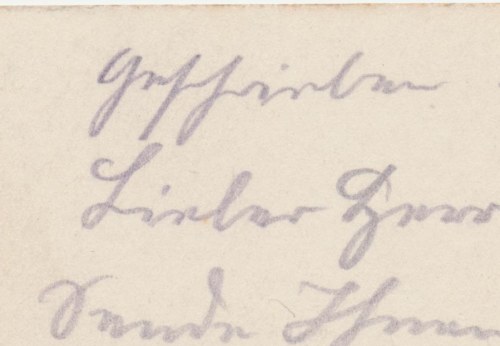 Geschrieben
Lieber Herr
Sende Ihnen